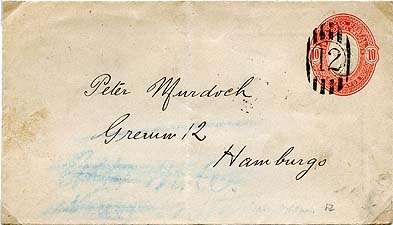 10 10
2
Peter Murdoch
Gremm 12
Hamburgo